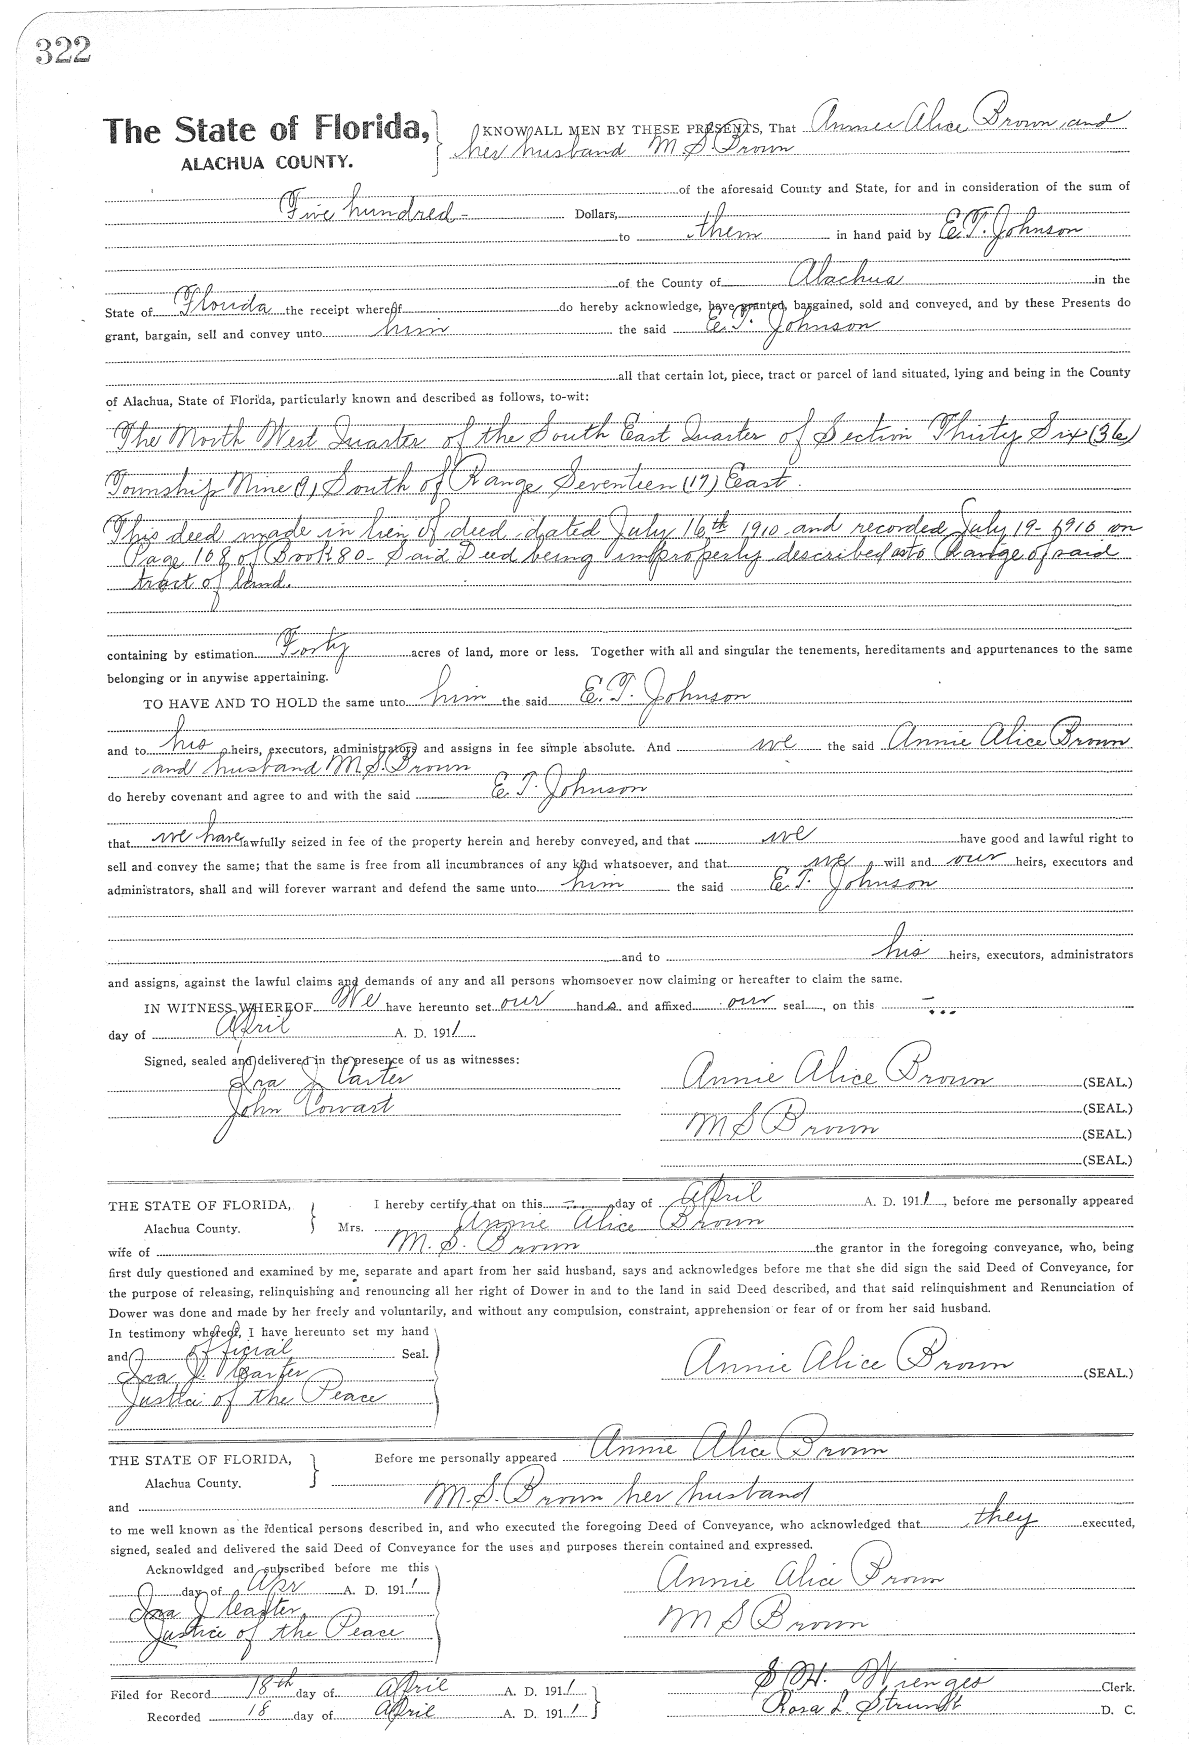 322
The State of Florida,
ALACHUA COUNTY.
KNOW ALL MEN BY THESE PRESENTS, That Annie Alice Brown and
her husband M S Brown
of the aforesaid County and State, for and in consideration of the sum of
Five hundred - Dollars,
to them in hand paid by E. T. Johnson
of the County of Alachua in the
State of Florida the receipt whereof do hereby acknowledge, have granted, bargained, sold and conveyed, and by these Presents do
grant, bargain, sell and convey unto him the said E. T. Johnson
all that certain lot, piece, tract or parcel of land situated, lying and being in the County
of Alachua, State of Florida, particularly known and described as follows, to-wit:
The North West Quarter of the South East Quarter of Section Thirty Six (36)
Township Nine (9) South of Range Seventeen (17) East.
This deed made in lieu of deed dated July 16th 1910 and recorded July 19- 1910 on
Page 108 of Book 80 - Said Deed being improperly described as to Range of said
tract of land.
containing by estimation Forty acres of land, more or less. Together with all and singular the tenements, hereditaments and appurtenances to the same
belonging or in anywise appertaining.
TO HAVE AND TO HOLD the same unto him the said E. T. Johnson
and to his heirs, executors, administrators and assigns in fee simple absolute. And we the said Annie Alice Brown
and husband M S. Brown
do hereby covenant and agree to and with the said E. T. Johnson
that we have lawfully seized in fee of the property herein and hereby conveyed, and that we have good and lawful right to
sell and convey the same; that the same is free from all incumbrances of any kind whatsoever, and that we will and our heirs, executors and
administrators, shall and will forever warrant and defend the same unto him the said E. T. Johnson
and to his heirs, executors, administrators
and assigns, against the lawful claims and demands of any and all persons whomsoever now claiming or hereafter to claim the same.
IN WITNESS WHEREOF We have hereunto set our hands and affixed our seal, on this -
day of April A. D. 1911
Signed, sealed and delivered in the presence of us as witnesses:
Ira J Carter
John Cowart
Annie Alice Brown (SEAL.)
(SEAL.)
M S Brown (SEAL.)
(SEAL.)
THE STATE OF FLORIDA,
Alachua County.
I hereby certify that on this - day of April A. D. 1911, before me personally appeared
Mrs. Annie Alice Brown
wife of M. S. Brown the grantor in the foregoing conveyance, who, being
first duly questioned and examined by me, separate and apart from her said husband, says and acknowledges before me that she did sign the said Deed of Conveyance, for
the purpose of releasing, relinquishing and renouncing all her right of Dower in and to the land in said Deed described, and that said relinquishment and Renunciation of
Dower was done and made by her freely and voluntarily, and without any compulsion, constraint, apprehension or fear of or from her said husband.
In testimony whereof, I have hereunto set my hand
and official Seal.
Ira J. Carter
Justice of the Peace
Annie Alice Brown (SEAL.)
THE STATE OF FLORIDA,
Alachua County.
Before me personally appeared Annie Alice Brown
and M. S. Brown her husband
to me well known as the identical persons described in, and who executed the foregoing Deed of Conveyance, who acknowledged that they executed,
signed, sealed and delivered the said Deed of Conveyance for the uses and purposes therein contained and expressed.
Acknowldged and subscribed before me this
day of Apr A. D. 1911
Ira J Carter
Justice of the Peace
Annie Alice Brown
M S Brown
Filed for Record 18th day of April A. D. 1911
Recorded 18 day of April A. D. 1911
S H. Wienges Clerk.
Rosa L. Strunk D. C.